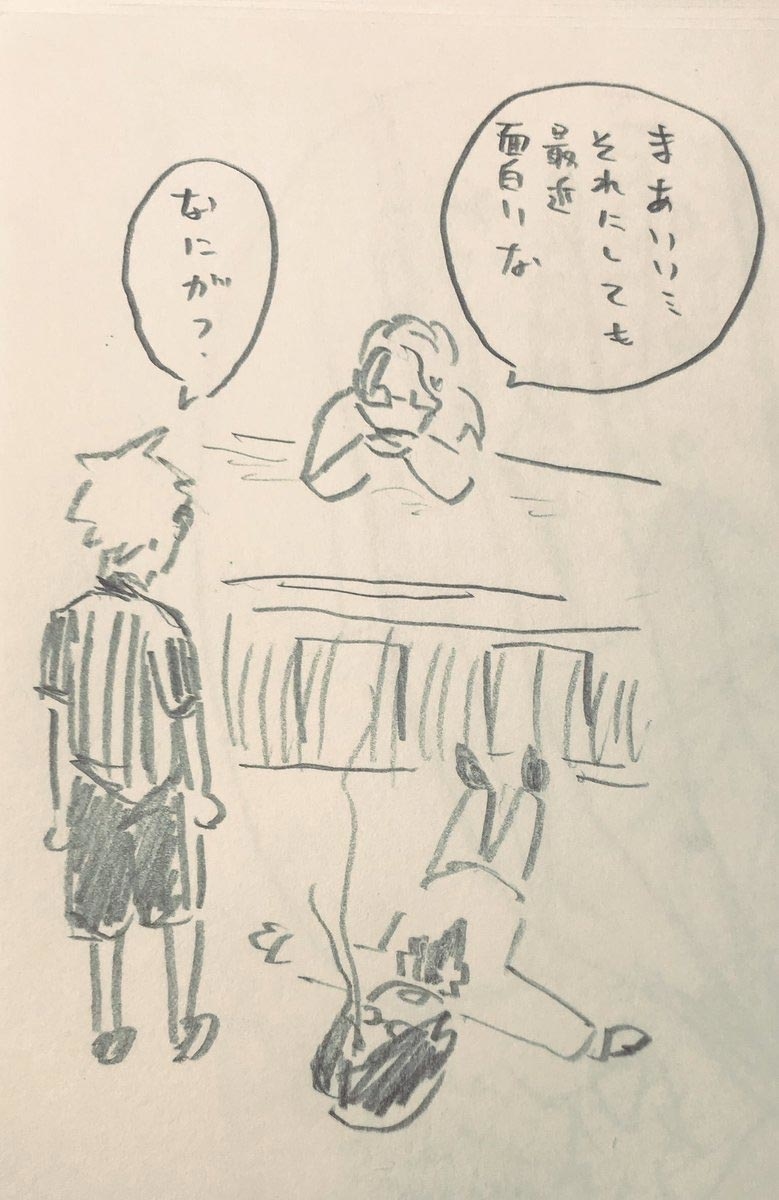 まあいい…
それにしても
最近
面白いな
なにが?